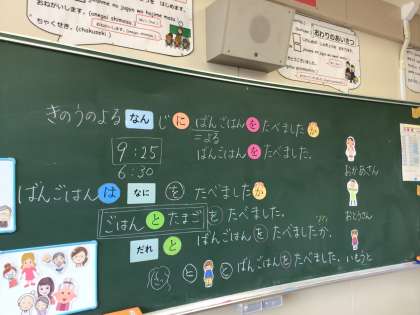 おねがいします。(onegai shimasu)
ちゃくせき。(chakuseki)
おわりのあいさつ
きのうのよる なん じ に ばんごはん を たべました か
=よる
ばんごはん を たべました。
9:25
6:30
ばんごはん は なに を たべました か
ごはん と たまご を たべました。
だれ と ばんごはん を たべましたか。
と と ばんごはん を たべました。
おかあさん
おとうさん
いもうと